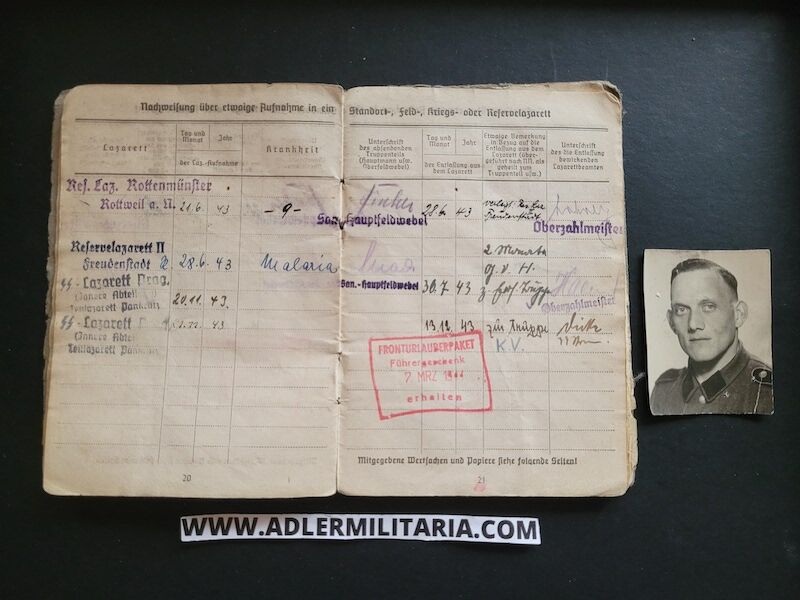 Nachweisung über etwaige Aufnahme in ein Standort-, Feld-, Kriegs- oder Reservelazarett
Lazarett
Tag und Monat
Jahr
der Laz.-Aufnahme
Krankheit
Unterschrift des absendenden Truppenteils (Hauptmann usw. Oberfeldwebel)
Tag und Monat
Jahr
der Entlassung aus dem Lazarett
Etwaige Bemerkung in Bezug auf die Entlassung aus dem Lazarett (übergeführt nach NN, als geheilt zum Truppenteil usw.)
Unterschrift des die Entlassung bewirkenden Lazarettbeamten
Res. Laz. Rottenmünster
Rottweil a. N. 21.6. 43 -9- San.-Hauptfeldwebel 28.6. 43 Freudenstadt Oberzahlmeister
Reservelazarett II
Freudenstadt 28.6. 43 Malaria San.-Hauptfeldwebel 30.7 43 2 Monate g.v.H. Oberzahlmeister
SS-Lazarett Prag
(Innere Abteil
Teillazarett Pankratz
20.11. 43.
SS-Lazarett
(Innere Abtei
Teillazarett Pankratz
13.12. 43 zur Truppe
K.V.
FRONTURLAUBERPAKET
Führergeschenk
7. MRZ. 1944
erhalten
Mitgegebene Wertsachen und Papiere siehe folgende Seiten!
20
21
WWW.ADLERMILITARIA.COM